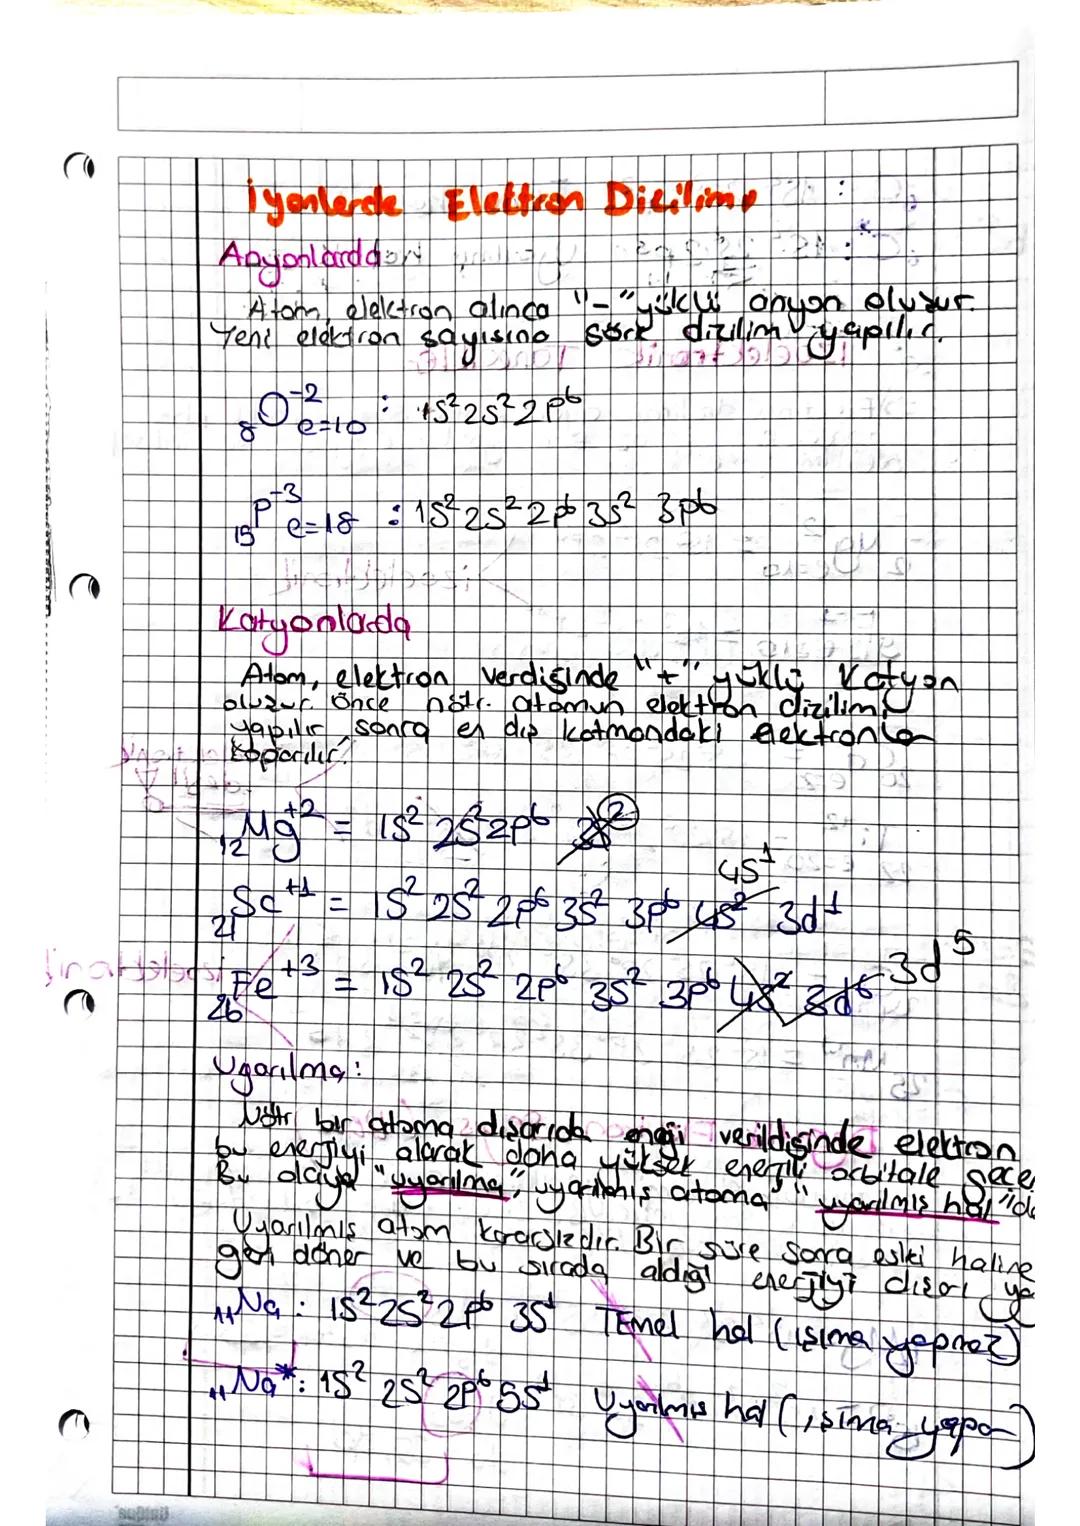 İyonlarda Elektron Dizilimi
Anyonlarda
Atom, elektron alınca "-" yüklü anyon oluşur.
Yeni elektron sayısına göre dizilim yapılır.
₈O⁻² e=10 : 1s² 2s² 2p⁶
₁₅P⁻³ e=18 : 1s² 2s² 2p⁶ 3s² 3p⁶
Katyonlarda
Atom, elektron verdiğinde "+" yüklü katyon
oluşur. Önce nötr atomun elektron dizilimi
yapılır, sonra en dış katmandaki elektronlar
koparılır.
₁₂Mg⁺² = 1s² 2s² 2p⁶ 3s²
4s¹
₂₁Sc⁺¹ = 1s² 2s² 2p⁶ 3s² 3p⁶ 4s² 3d¹
₂₆Fe⁺³ = 1s² 2s² 2p⁶ 3s² 3p⁶ 4s² 3d⁶ 3d⁵
Uyarılma:
Nötr bir atoma dışarıda enerji verildiğinde elektron
bu enerjiyi alarak daha yüksek enerjili orbitale geçer
Bu olaya "uyarılma", uyarılmış atoma "uyarılmış hal" de
Uyarılmış atom kararsızdır. Bir süre sonra eski haline
geri döner ve bu sırada aldığı enerjiyi dışarı ya
₁₁Na : 1s² 2s² 2p⁶ 3s¹ Temel hal (ışıma yapmaz)
₁₁Na* : 1s² 2s² 2p⁶ 5s¹ Uyarılmış hal (ışıma yapar)